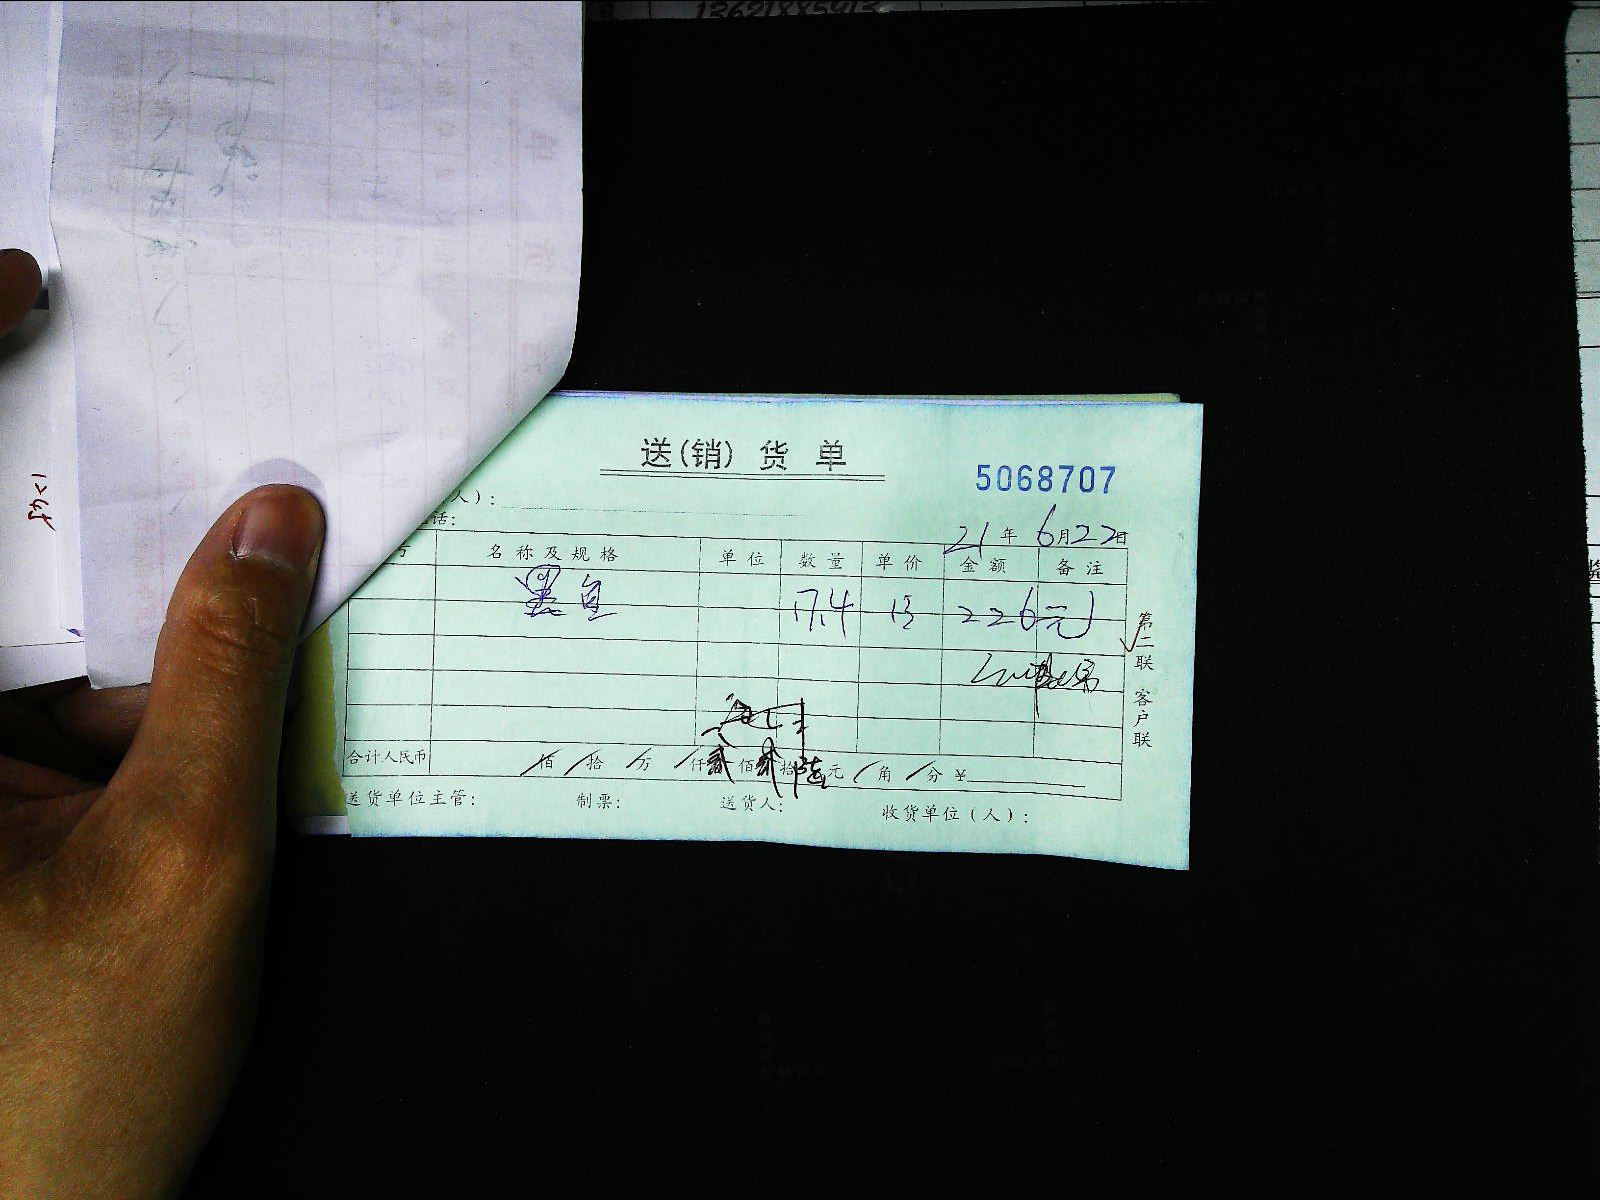 13621885913
送(销)货单
5068707
人):
话:
21年6月22日
名称及规格 单位 数量 单价 金额 备注
黑鱼 17.4 13 226元
合计人民币 佰 拾 万 仟 贰 佰 贰 拾 陆 元 角 分 ¥
送货单位主管: 制票: 送货人: 收货单位(人):
第二联 客户联